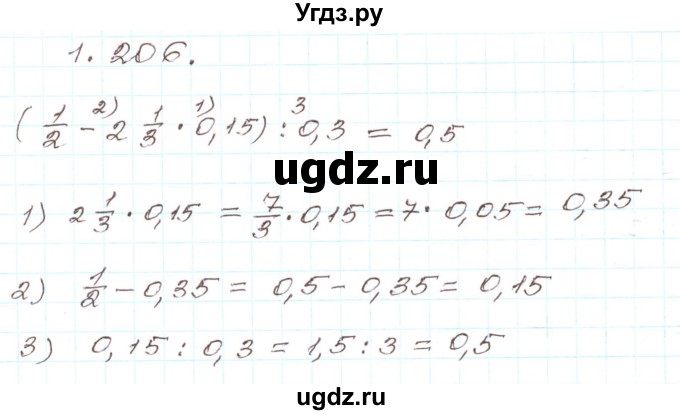 Угдз.ру
1. 206.
( 1/2 - 2 1/3 · 0,15) : 0,3 = 0,5
2) 1) 3
ugdz.ru
1) 2 1/3 · 0,15 = 7/3 · 0,15 = 7 · 0,05 = 0,35
2) 1/2 - 0,35 = 0,5 - 0,35 = 0,15
3) 0,15 : 0,3 = 1,5 : 3 = 0,5
ugdz.ru